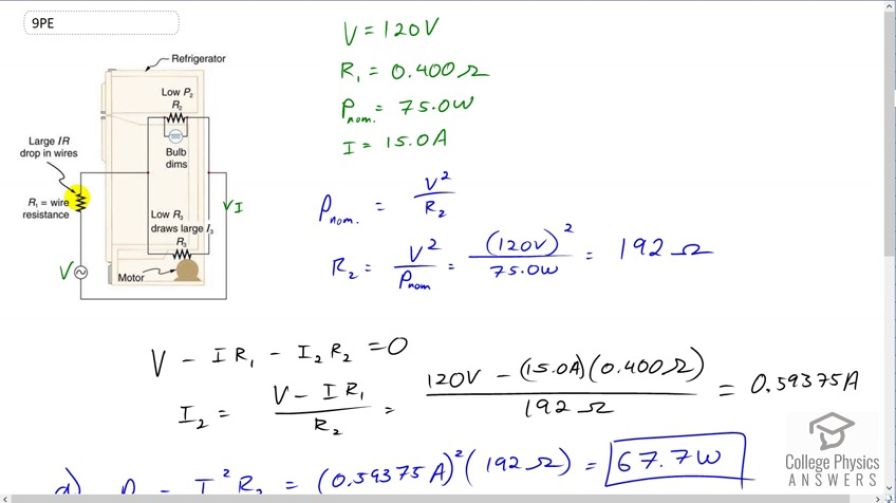 9PE
Refrigerator
Low P₂
R₂
Large IR
drop in wires
Bulb
dims
R₁ = wire
resistance
Low R₃
draws large I₃
R₃
Motor
V
V I
V = 120V
R₁ = 0.400 Ω
Pnom. = 75.0W
I = 15.0A
Pnom. = V² / R₂
R₂ = V² / Pnom = (120V)² / 75.0W = 192 Ω
V - IR₁ - I₂R₂ = 0
I₂ = (V - IR₁) / R₂ = (120V - (15.0A)(0.400Ω)) / 192 Ω = 0.59375A
= (0.59375A)² (192 Ω) = 67.7W
College Physics
ANSWERS